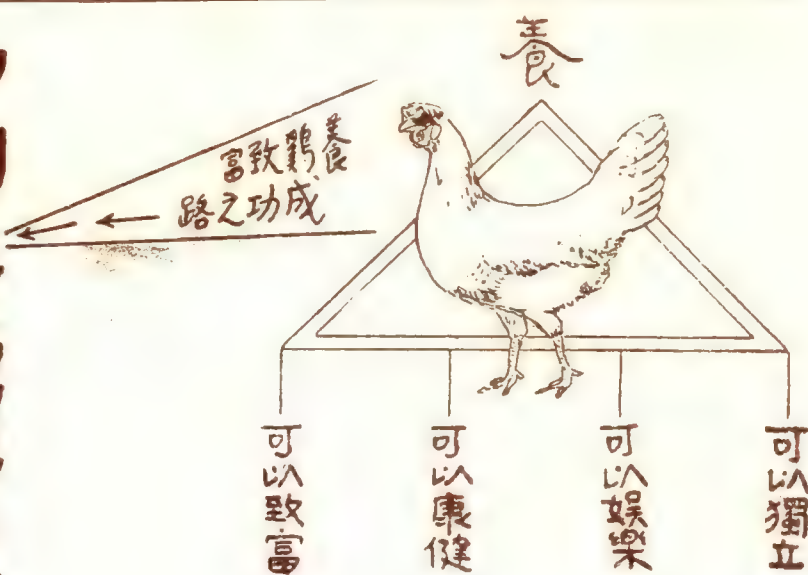 養
養鷄致富
成功之路
可以獨立
可以娯樂
可以康健
可以致富